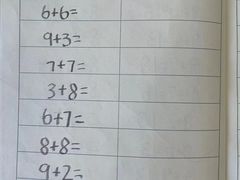 6+6=
9+3=
7+7=
3+8=
6+7=
8+8=
9+2=